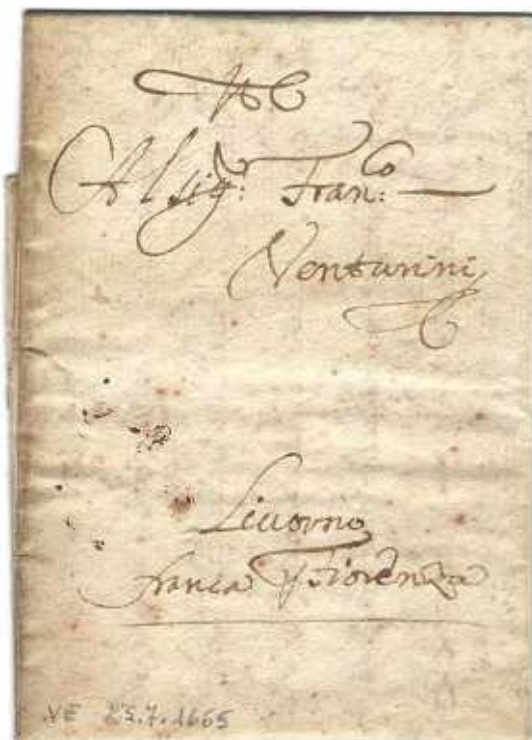 Al Sig.r Fran.co
Venturini
Livorno
franca p Fiorenza
VE 23.7.1665